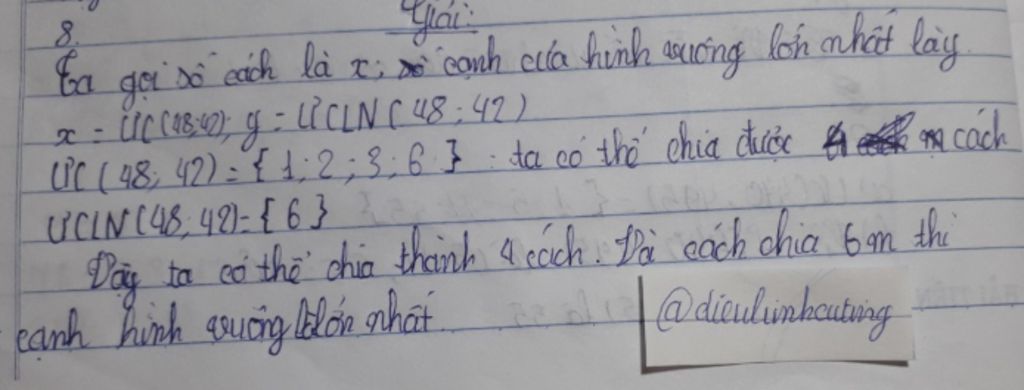 Giải:
8.
Ta gọi số cách là x; cạnh của hình vuông lớn nhất là y
x = ƯC(48;42); y = ƯCLN(48;42)
ƯC(48;42) = {1;2;3;6}. ta có thể chia được cách
ƯCLN(48;42)={6}
Vậy ta có thể chia thành 4 cách. Và cách chia 6m thì
cạnh hình vuông lớn nhất
@dieulinhcuting